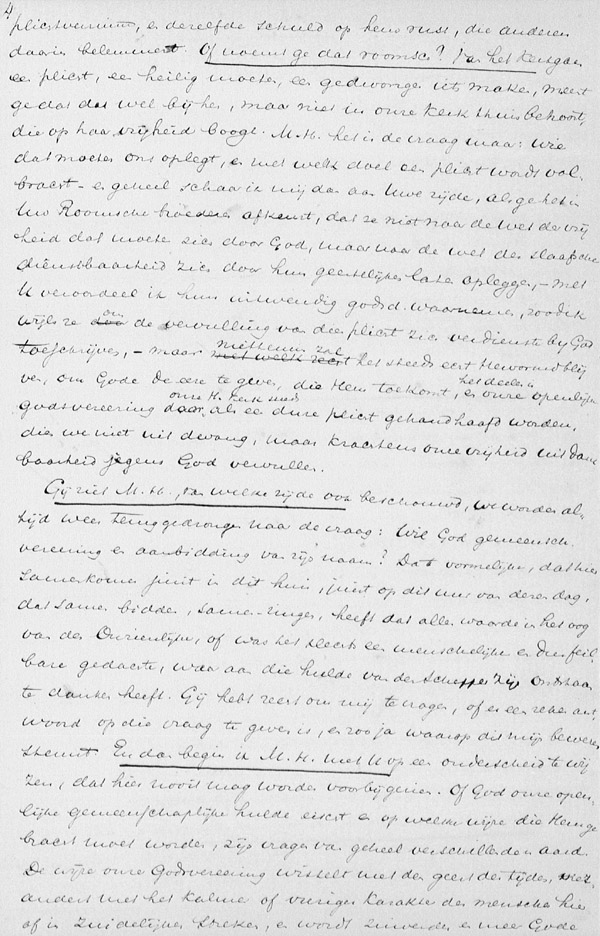 4
plichtverzuim, en dezelfde schuld op hem rust, die anderen
daarin belemmert. Of noemt ge dat roomsch? Van het kerkgaan
een plicht, een heilig moeten, een gedwongen iets maken, meent
ge dat dat wel bij hen, maar niet in onze kerk thuis behoort,
die op haar vrijheid boogt. M.H. het is de vraag maar: wie
dat moeten ons oplegt, en met welk doel een plicht wordt vol-
bracht - en geheel schaar ik mij dan aan Uwe zijde, als ge het in
Uw Roomsche broederen afkeurt, dat ze niet naar de wet der vrij
heid dat moeten zich door God, maar naar de wet der slaafsche
dienstbaarheid zich door hun geestelijken laten opleggen, - met
U veroordeel ik hun uitwendig godsd. waarnemen, zoodik
wijls ze aan de vervulling van die plicht zich verdienste bij God
toeschrijven, - maar niettemin zal het steeds eerst Hervormd blij
ven, om Gode de eere te geven, die Hem toekomt, en onze openlijke
onze H. Kerk steeds
godsvereering door, als een dure plicht gehandhaafd worden,
dien we niet uit dwang, maar krachtens onze vrijheid uit dank
baarheid jegens God vervullen.
Gij ziet M.H., van welke zijde ook beschouwd, we worden al-
tijd weer teruggedrongen naar de vraag: Wil God gemeensch.
vereering en aanbidding van zijn naam? Dat vormelijke, dat hier
samenkomen juist in dit huis, juist op dit uur van dezen dag,
dat samen bidden, samen-zingen, heeft dat alles waarde in het oog
van den Onzienlijke, of was het slechts een menschelijke en dus feil
bare gedachte, waar aan die hulde van den Schepper zijn ontstaan
te danken heeft. Gij hebt recht om mij te vragen, of er een zeker ant-
woord op die vraag te geven is, en zoo ja waarop dit mijn beweren
steunt. En dan begin ik M.H. met U op een onderscheid te wij
zen, dat hier nooit mag worden voorbijgezien. Of God onze open-
lijke gemeenschaplijke hulde eischt en op welke wijze die Hem ge
bracht moet worden, zijn vragen van geheel verschillenden aard.
De wijze onzer Godsvereering wisselt met den geest der tijden,
anders met het kalme of vurige karakter der menschen hier
of in zuidelijker streken, en wordt mee Gode